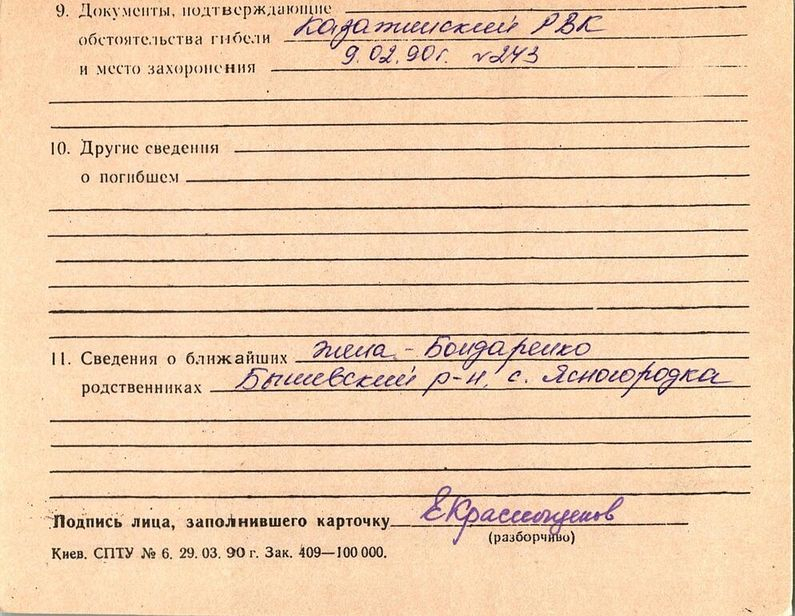 9. Документы, подтверждающие
обстоятельства гибели Казатинский РВК
и место захоронения 9.02.90г. №243
10. Другие сведения
о погибшем
11. Сведения о ближайших жена - Бондаренко
родственниках Бышевский р-н, с. Ясногородка
Подпись лица, заполнившего карточку
(разборчиво)
Киев. СПТУ № 6. 29. 03. 90 г. Зак. 409—100 000.